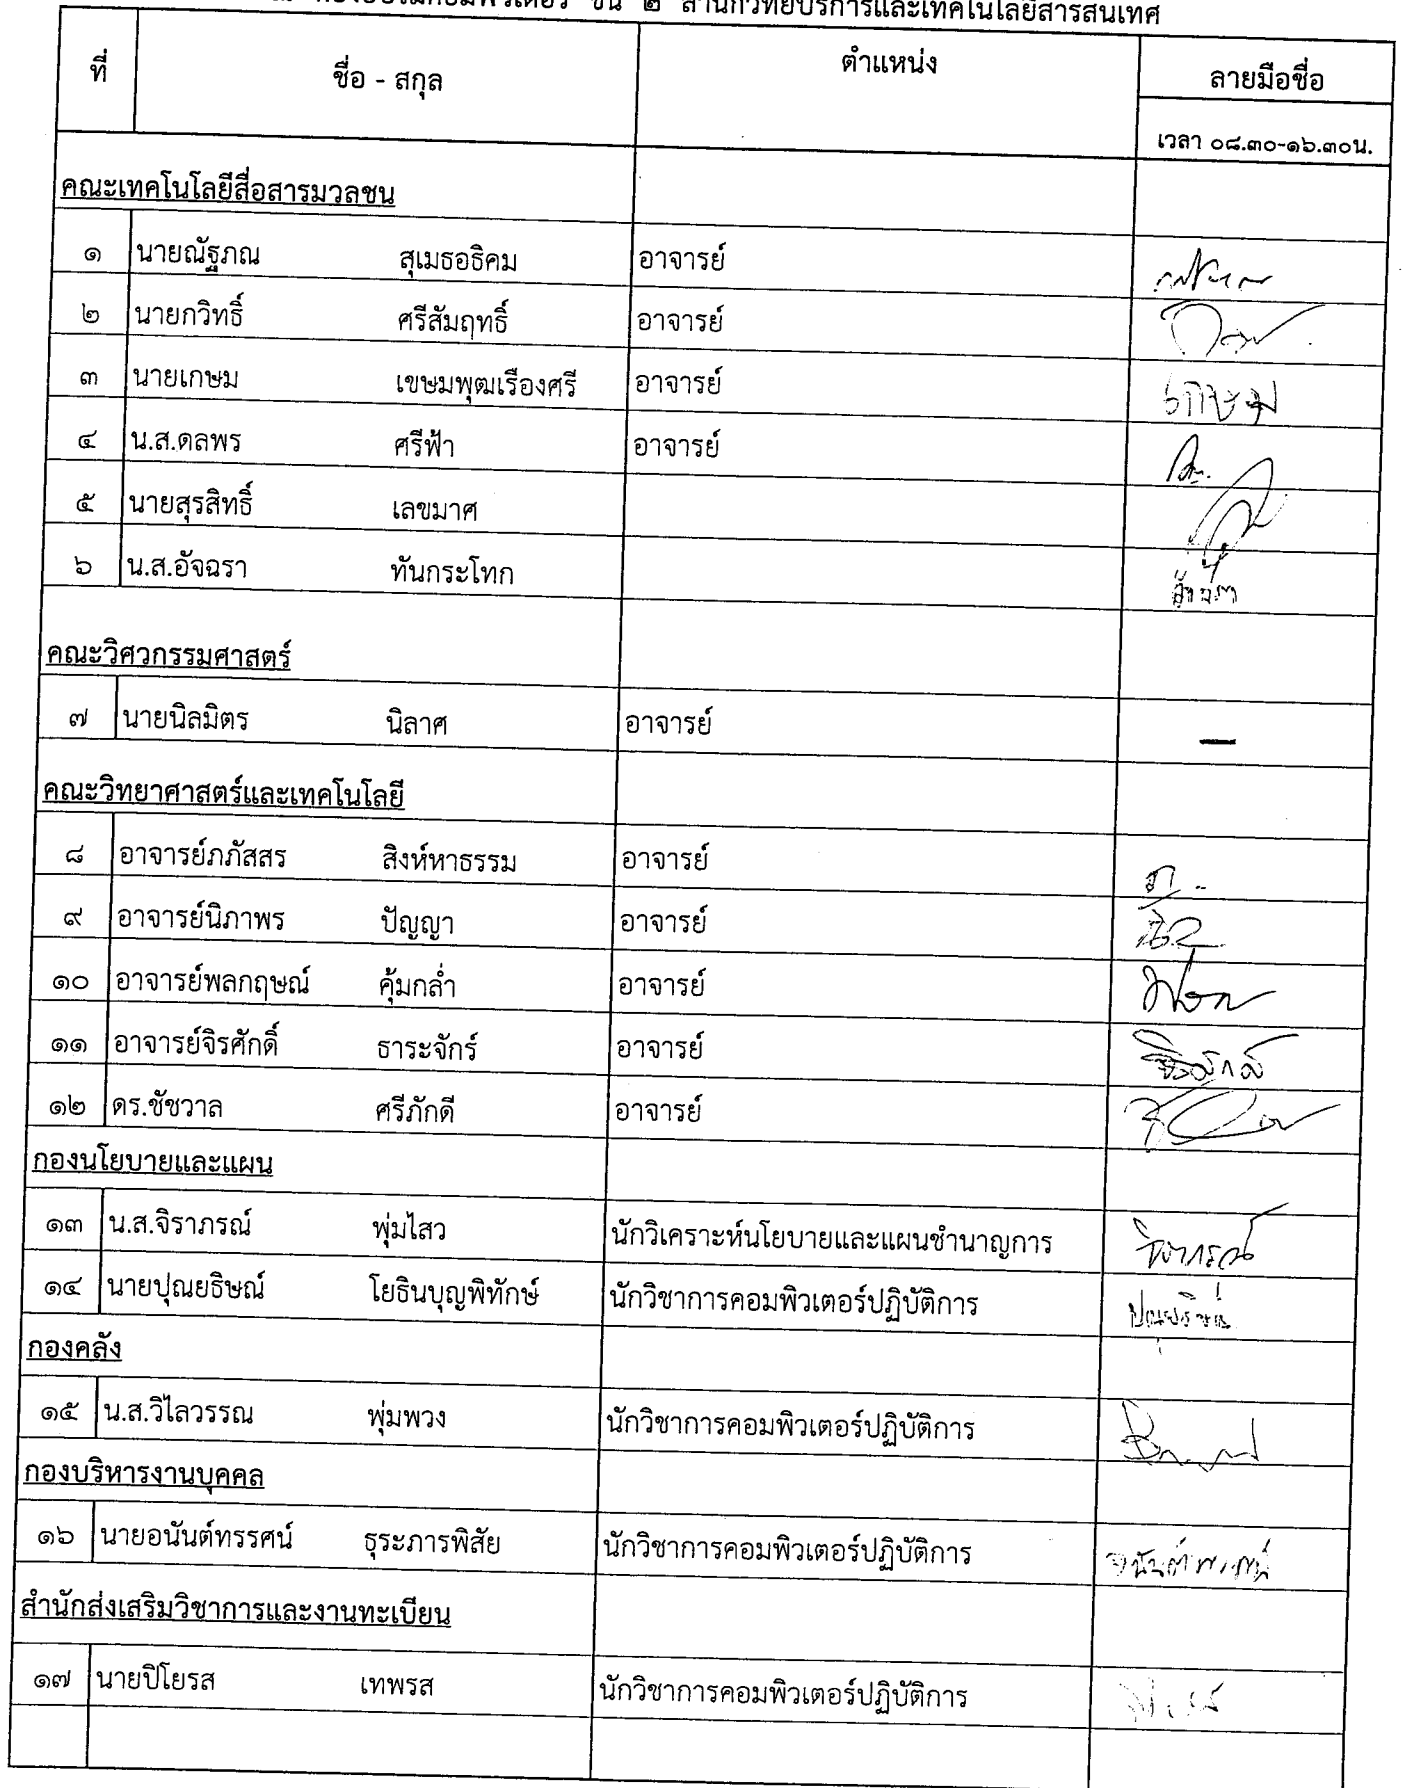 ณ ห้องอบรมคอมพิวเตอร์ ชั้น ๒ สำนักวิทยบริการและเทคโนโลยีสารสนเทศ
ที่ ชื่อ - สกุล ตำแหน่ง ลายมือชื่อ
เวลา ๐๘.๓๐-๑๖.๓๐น.
คณะเทคโนโลยีสื่อสารมวลชน
๑ นายณัฐภณ สุเมธอธิคม อาจารย์
๒ นายกวิทธิ์ ศรีสัมฤทธิ์ อาจารย์
๓ นายเกษม เขษมพุฒเรืองศรี อาจารย์ เกษม
๔ น.ส.ดลพร ศรีฟ้า อาจารย์
๕ นายสุรสิทธิ์ เลขมาศ
๖ น.ส.อัจฉรา ทันกระโทก
คณะวิศวกรรมศาสตร์
๗ นายนิลมิตร นิลาศ อาจารย์ —
คณะวิทยาศาสตร์และเทคโนโลยี
๘ อาจารย์ภภัสสร สิงห์หาธรรม อาจารย์
๙ อาจารย์นิภาพร ปัญญา อาจารย์
๑๐ อาจารย์พลกฤษณ์ คุ้มกล่ำ อาจารย์
๑๑ อาจารย์จิรศักดิ์ ธาระจักร์ อาจารย์
๑๒ ดร.ชัชวาล ศรีภักดี อาจารย์
กองนโยบายและแผน
๑๓ น.ส.จิราภรณ์ พุ่มไสว นักวิเคราะห์นโยบายและแผนชำนาญการ จิราภรณ์
๑๔ นายปุณยธิษณ์ โยธินบุญพิทักษ์ นักวิชาการคอมพิวเตอร์ปฏิบัติการ
กองคลัง
๑๕ น.ส.วิไลวรรณ พุ่มพวง นักวิชาการคอมพิวเตอร์ปฏิบัติการ
กองบริหารงานบุคคล
๑๖ นายอนันต์ทรรศน์ ธุระภารพิสัย นักวิชาการคอมพิวเตอร์ปฏิบัติการ
สำนักส่งเสริมวิชาการและงานทะเบียน
๑๗ นายปิโยรส เทพรส นักวิชาการคอมพิวเตอร์ปฏิบัติการ